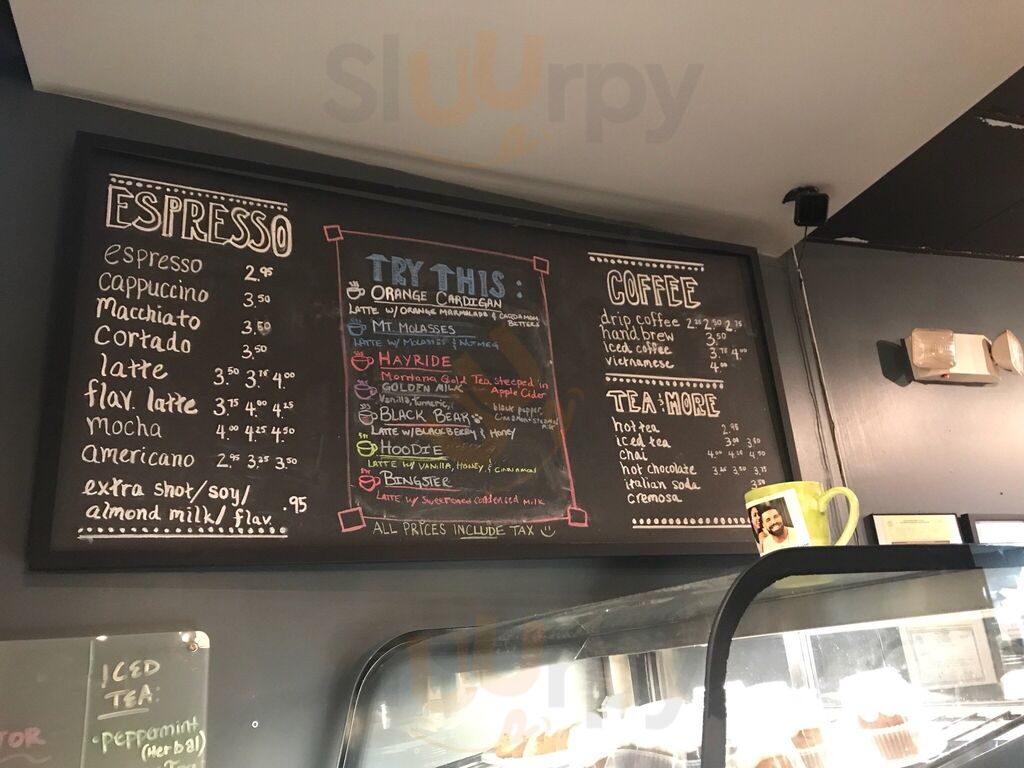 Sluurpy
ESPRESSO
espresso 2.95
cappuccino 3.50
Macchiato 3.50
Cortado 3.50
latte 3.50 3.75 4.00
flav. latte 3.75 4.00 4.25
mocha 4.00 4.25 4.50
americano 2.95 3.25 3.50
extra shot/soy/
almond milk/flav. .95
TRY THIS:
ORANGE CARDIGAN
LATTE W/ ORANGE MARMALADE & CARDAMOM
BITTERS
MT. MOLASSES
LATTE W/ MOLASSES & NUTMEG
HAYRIDE
Montana Gold Tea steeped in
Apple Cider
GOLDEN MILK
Vanilla, turmeric, black pepper,
cinnamon + steamed
milk
BLACK BEAR
LATTE W/ BLACKBERRY & HONEY
HOODIE
LATTE W/ VANILLA, HONEY, & CINNAMON
BINGSTER
LATTE W/ Sweetened Condensed Milk
ALL PRICES INCLUDE TAX
COFFEE
drip coffee 2.25 2.50 2.75
hand brew 3.50
iced coffee 3.75 4.00
vietnamese 4.00
TEA & MORE
hot tea 2.95
iced tea 3.00 3.50
chai 4.00 4.25 4.50
hot chocolate 3.25 3.50 3.75
italian soda 3.50
cremosa
ICED
TEA:
peppermint
(Herbal)
Sluurpy